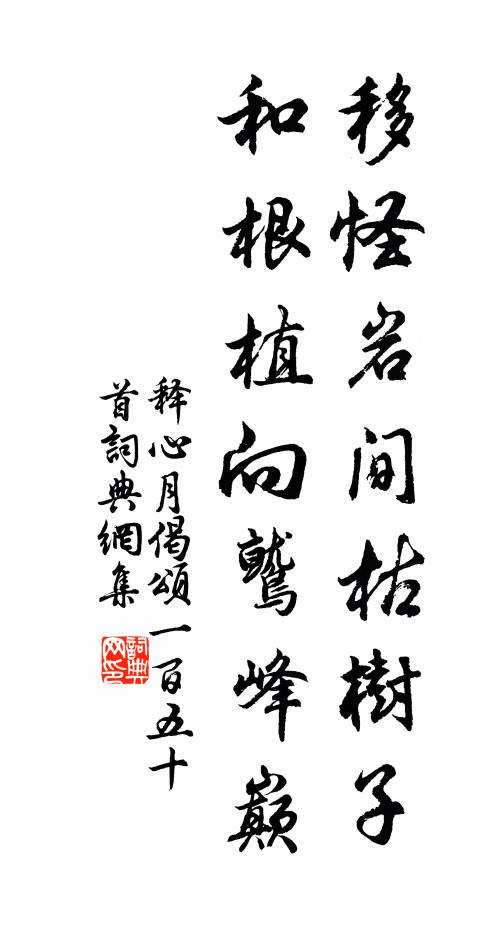 移怪岩间枯樹子
和根植向鷲峰巔
释心月偈頌一百五十
首詞典網集
詞典網印